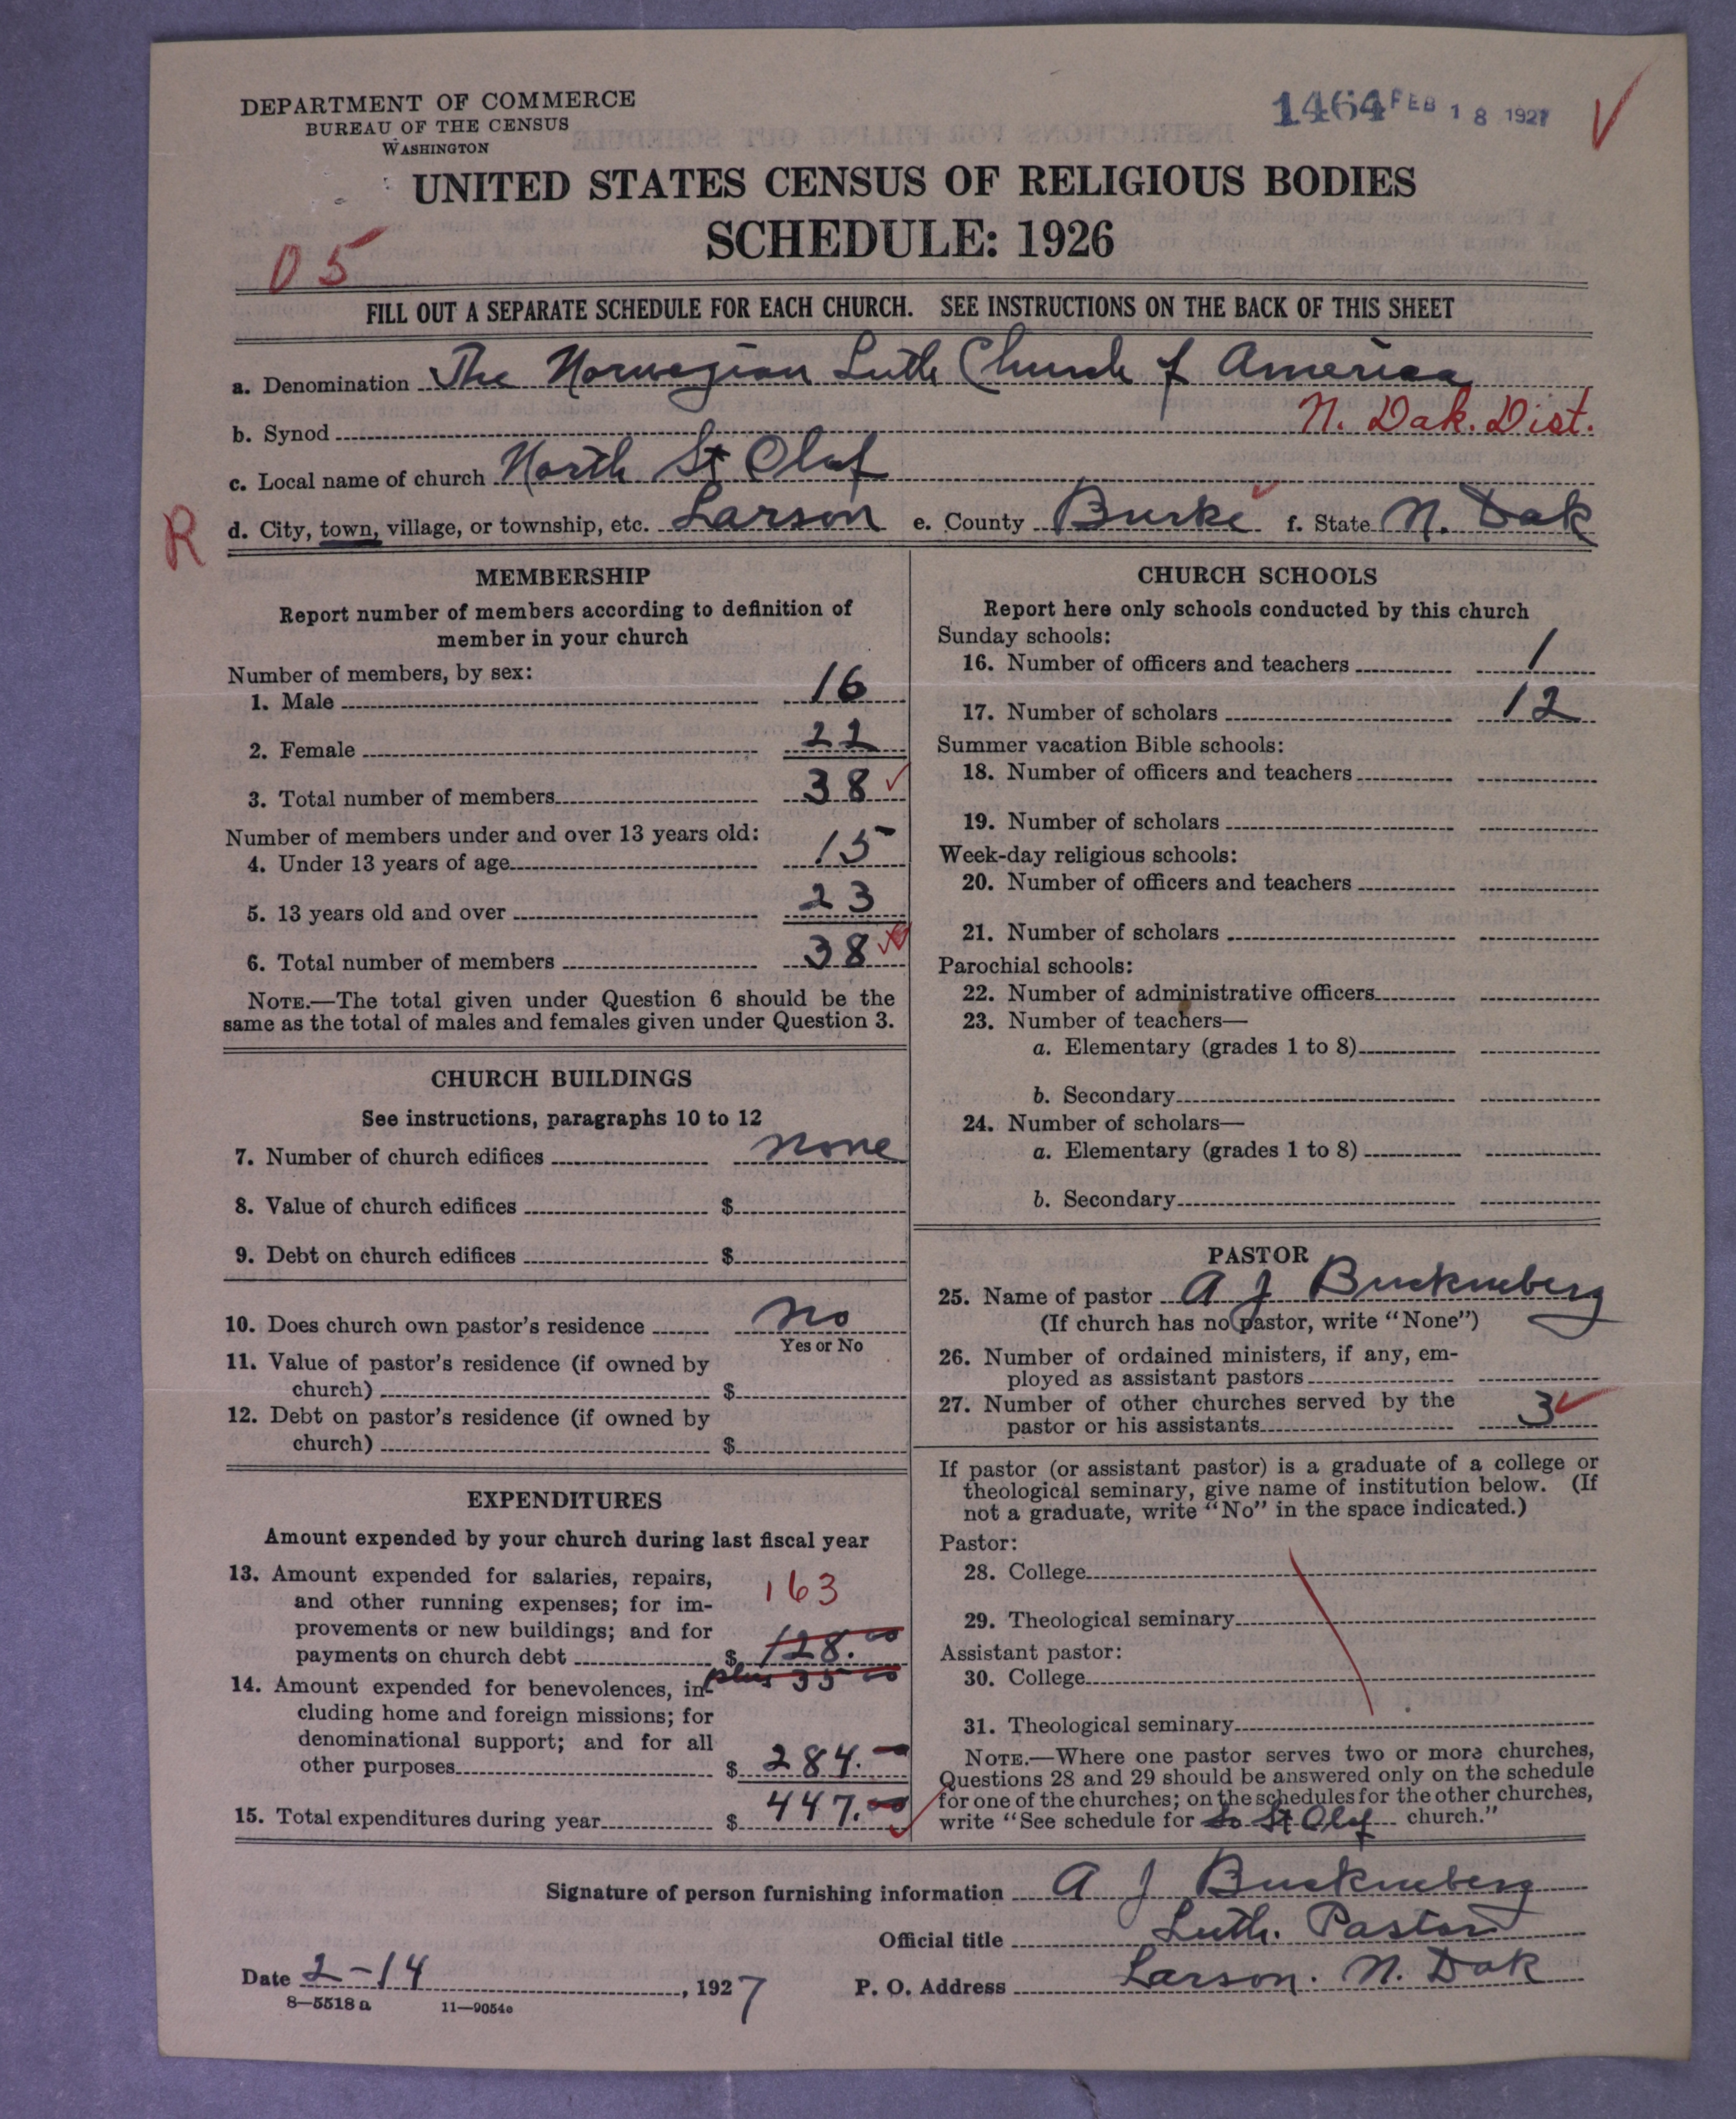 DEPARTMENT OF COMMERCE
BUREAU OF THE CENSUS
WASHINGTON
1464 FEB 18 1927
UNITED STATES CENSUS OF RELIGIOUS BODIES
SCHEDULE: 1926
05
FILL OUT A SEPARATE SCHEDULE FOR EACH CHURCH. SEE INSTRUCTIONS ON THE BACK OF THIS SHEET
a. Denomination The Norwegian Luth Church of America
b. Synod N. Dak. Dist.
c. Local name of church North St Olaf
R d. City, town, village, or township, etc. Larson e. County Burke f. State N. Dak
MEMBERSHIP
Report number of members according to definition of
member in your church
Number of members, by sex:
1. Male 16
2. Female 22
3. Total number of members 38
Number of members under and over 13 years old:
4. Under 13 years of age 15
5. 13 years old and over 23
6. Total number of members 38
NOTE.—The total given under Question 6 should be the
same as the total of males and females given under Question 3.
CHURCH BUILDINGS
See instructions, paragraphs 10 to 12
7. Number of church edifices none
8. Value of church edifices $
9. Debt on church edifices $
10. Does church own pastor's residence no
Yes or No
11. Value of pastor's residence (if owned by
church) $
12. Debt on pastor's residence (if owned by
church) $
EXPENDITURES
Amount expended by your church during last fiscal year
13. Amount expended for salaries, repairs,
and other running expenses; for im-
provements or new buildings; and for
payments on church debt $ 128.00
163
plus 35 00
14. Amount expended for benevolences, in-
cluding home and foreign missions; for
denominational support; and for all
other purposes $ 284.—
15. Total expenditures during year $ 447.00
CHURCH SCHOOLS
Report here only schools conducted by this church
Sunday schools:
16. Number of officers and teachers 1
17. Number of scholars 12
Summer vacation Bible schools:
18. Number of officers and teachers
19. Number of scholars
Week-day religious schools:
20. Number of officers and teachers
21. Number of scholars
Parochial schools:
22. Number of administrative officers
23. Number of teachers—
a. Elementary (grades 1 to 8)
b. Secondary
24. Number of scholars—
a. Elementary (grades 1 to 8)
b. Secondary
PASTOR
25. Name of pastor A J
(If church has no pastor, write "None")
26. Number of ordained ministers, if any, em-
ployed as assistant pastors
27. Number of other churches served by the
pastor or his assistants 3
If pastor (or assistant pastor) is a graduate of a college or
theological seminary, give name of institution below. (If
not a graduate, write "No" in the space indicated.)
Pastor:
28. College
29. Theological seminary
Assistant pastor:
30. College
31. Theological seminary
NOTE.—Where one pastor serves two or more churches,
Questions 28 and 29 should be answered only on the schedule
for one of the churches; on the schedules for the other churches,
write "See schedule for So St Olaf church."
Signature of person furnishing information A J
Official title Luth. Pastor
Date 2-14, 1927 P. O. Address Larson. N. Dak
8—5518a 11—9054e